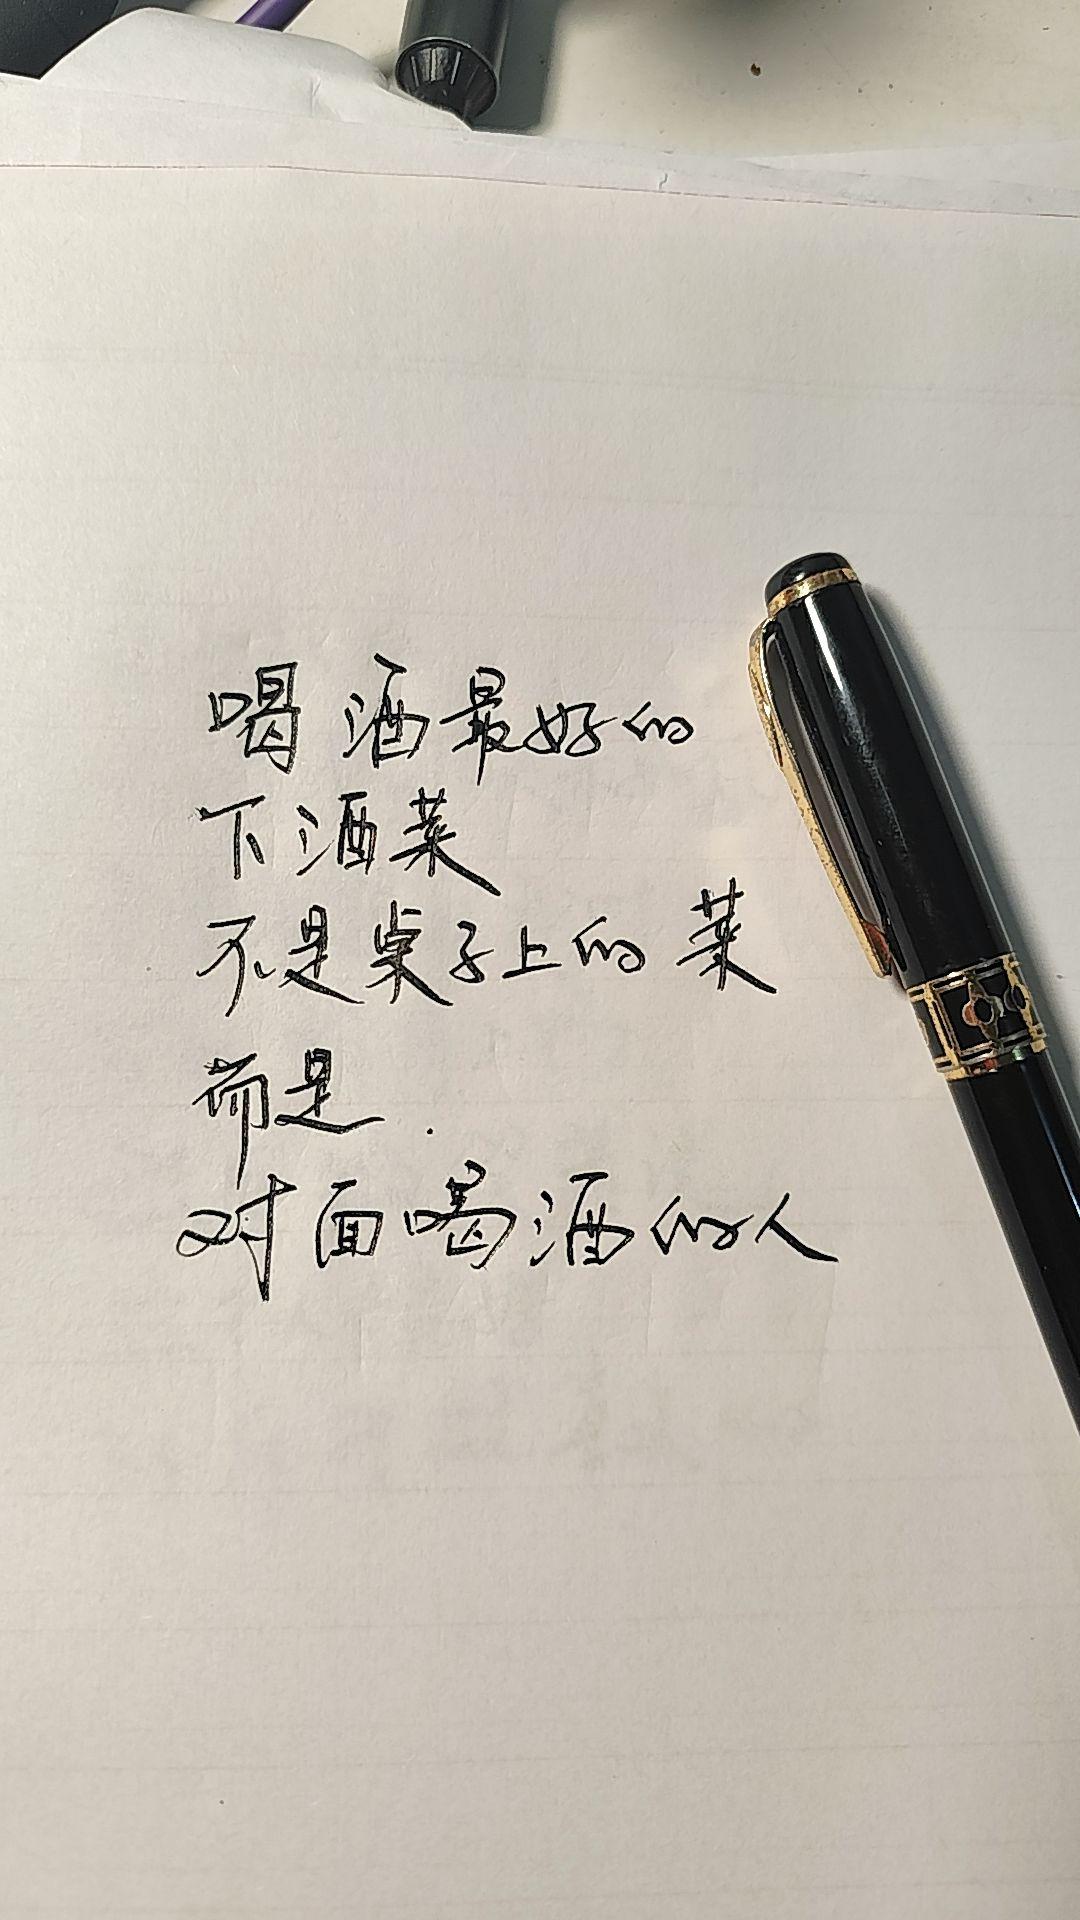 喝酒最好的
下酒菜
不是桌子上的菜
而是
对面喝酒的人